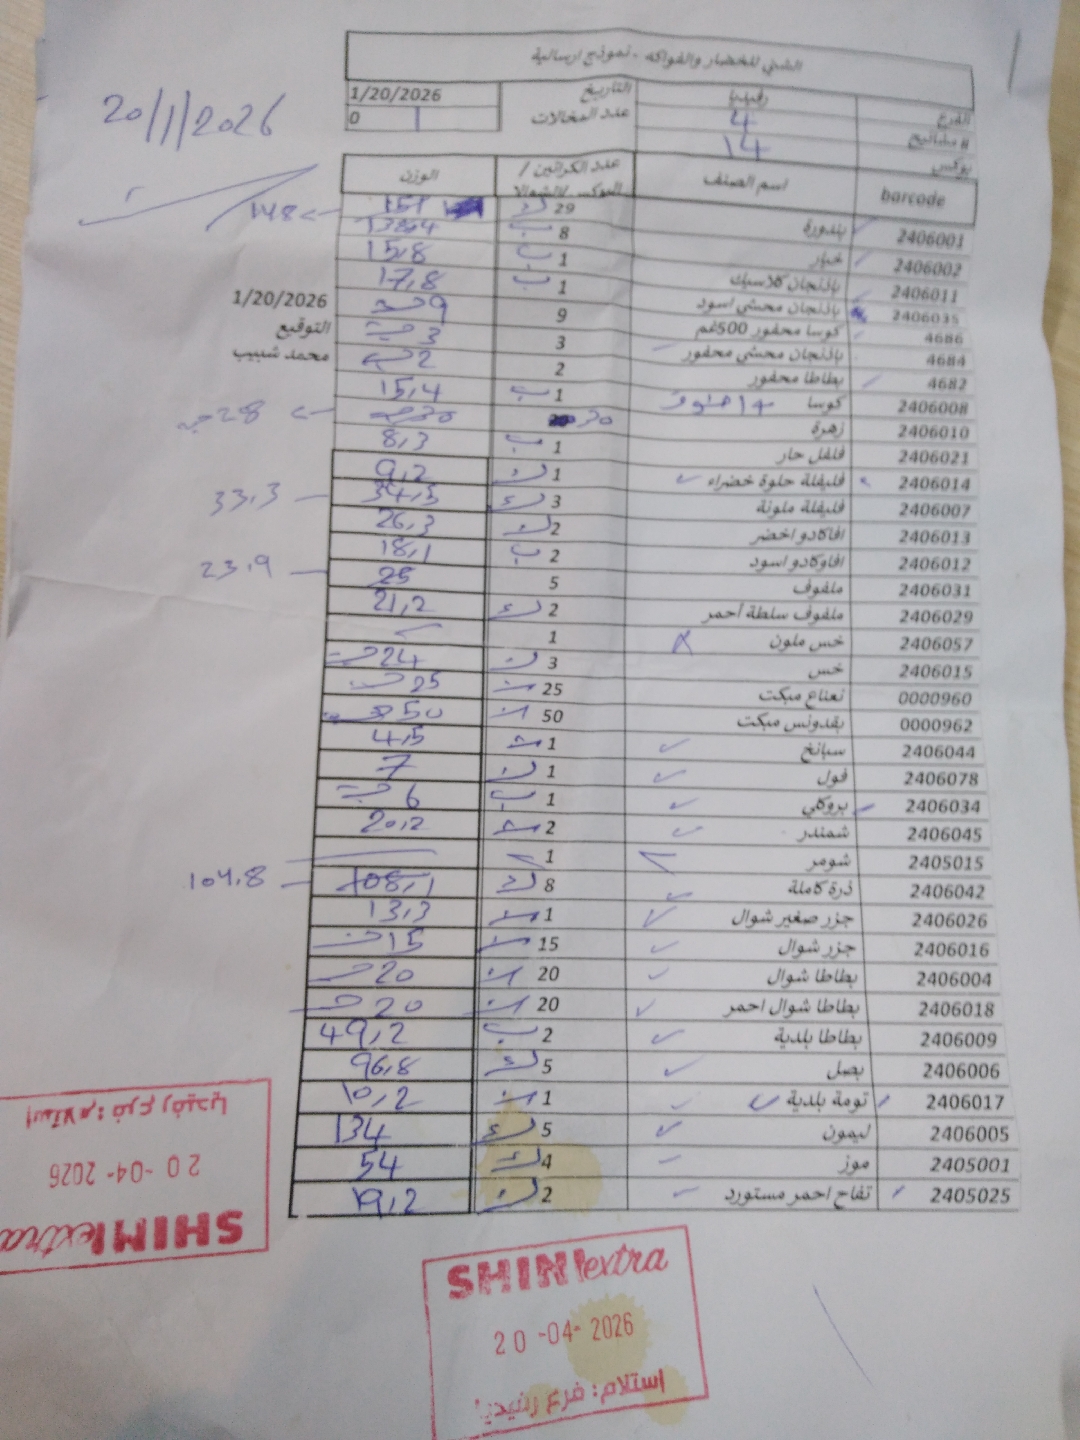 الشني للخضار والفواكه - نموذج ارسالية
الفرع رفيديا التاريخ 1/20/2026
# مشاتيح 4 عدد المخالات 0 1
بوكس 14
20/1/2026
barcode اسم الصنف عدد الكراتين / البوكس /الشوال الوزن
2406001 بندورة 29 151 148
2406002 خيار 8 138,4
2406011 باذنجان كلاسيك 1 ب 15,8
2406035 باذنجان محشي اسود 1 ب 17,8
4686 كوسا محفور 500غم 9 9
4684 باذنجان محشي محفور 3 3
4682 بطاطا محفور 2 2
2406008 كوسا 1 ب 15,4
2406010 زهرة 30 30 28
2406021 فلفل حار 1 ب 8,3
2406014 فليفلة حلوة خضراء 1 9,2
2406007 فليفلة ملونة 3 34,5 33,3
2406013 افاكادو اخضر 2 26,3
2406012 افاوكادو اسود 2 ب 18,1
2406031 ملفوف 5 25 23,9
2406029 ملفوف سلطة احمر 2 21,2
2406057 خس ملون 1
2406015 خس 3 24
0000960 نعناع مبكت 25 25
0000962 بقدونس مبكت 50 50
2406044 سبانخ 1 4,5
2406078 فول 1 7
2406034 بروكلي 1 ب 6
2406045 شمندر 2 20,2
2405015 شومر 1
2406042 ذرة كاملة 8 108,1 104,8
2406026 جزر صغير شوال 1 13,3
2406016 جزر شوال 15 15
2406004 بطاطا شوال 20 20
2406018 بطاطا شوال احمر 20 20
2406009 بطاطا بلدية 2 ب 49,2
2406006 بصل 5 96,8
2406017 تومة بلدية 1 10,2
2406005 ليمون 5 134
2405001 موز 4 54
2405025 تفاح احمر مستورد 2 19,2
1/20/2026
التوقيع
محمد شبيب
استلام: فرع رفيديا
20-04-2026
SHINIextra
SHINIextra
20-04-2026
استلام: فرع رفيديا